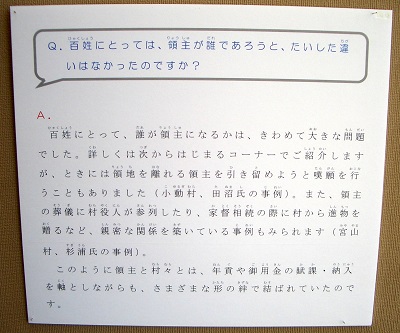 Q．百姓にとっては、領主が誰であろうと、たいした違
いはなかったのですか？
A．
百姓にとって、誰が領主になるかは、きわめて大きな問題
でした。詳しくは次からはじまるコーナーでご紹介します
が、ときには領地を離れる領主を引き留めようと嘆願を行
うこともありました（小動村、田沼氏の事例）。また、領主
の葬儀に村役人が参列したり、家督相続の際に村から進物を
贈るなど、親密な関係を築いている事例もみられます（宮山
村、杉浦氏の事例）。
このように領主と村々とは、年貢や御用金の賦課・納入
を軸としながらも、さまざまな形の絆で結ばれていたので
す。